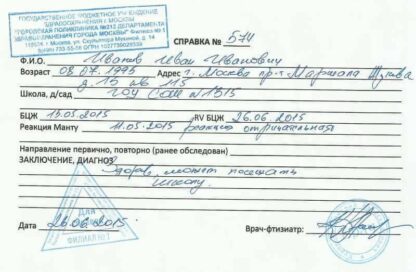 ГОСУДАРСТВЕННОЕ БЮДЖЕТНОЕ УЧРЕЖДЕНИЕ
ЗДРАВООХРАНЕНИЯ г. МОСКВЫ
"ГОРОДСКАЯ ПОЛИКЛИНИКА №212 ДЕПАРТАМЕНТА
ЗДРАВООХРАНЕНИЯ ГОРОДА МОСКВЫ" Филиал № 1
СПРАВКА № 574
Ф.И.О. Иванов Иван Иванович
Возраст 08.07.1995 Адрес г. Москва пр-т Маршала Жукова
д. 15 кв 115
Школа, д/сад ГОУ СОШ №1515
БЦЖ 15.05.2015 RV БЦЖ 26.06.2015
Реакция Манту 11.05.2015 реакция отрицательная
Направление первично, повторно (ранее обследован)
ЗАКЛЮЧЕНИЕ, ДИАГНОЗ
Здоров, может посещать
школу.
Для
ФИЛИАЛ №1
Дата 26.06.2015
Врач-фтизиатр: